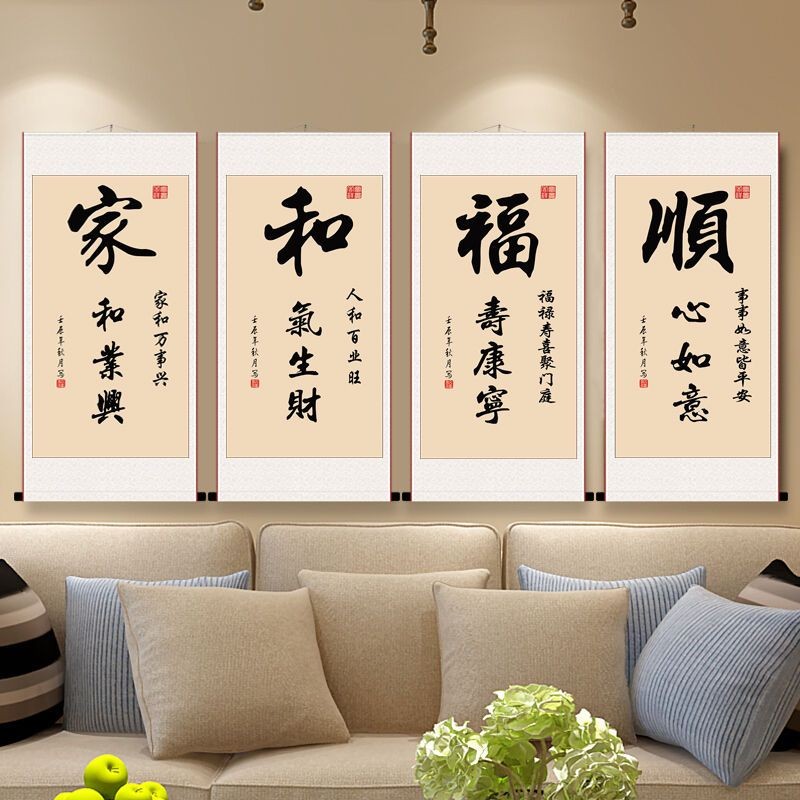 家
和業興
家和万事兴
壬辰年秋月写
和
氣生財
人和百业旺
壬辰年秋月写
福
壽康寧
福禄寿喜聚门庭
壬辰年秋月写
順
心如意
事事如意皆平安
壬辰年秋月写